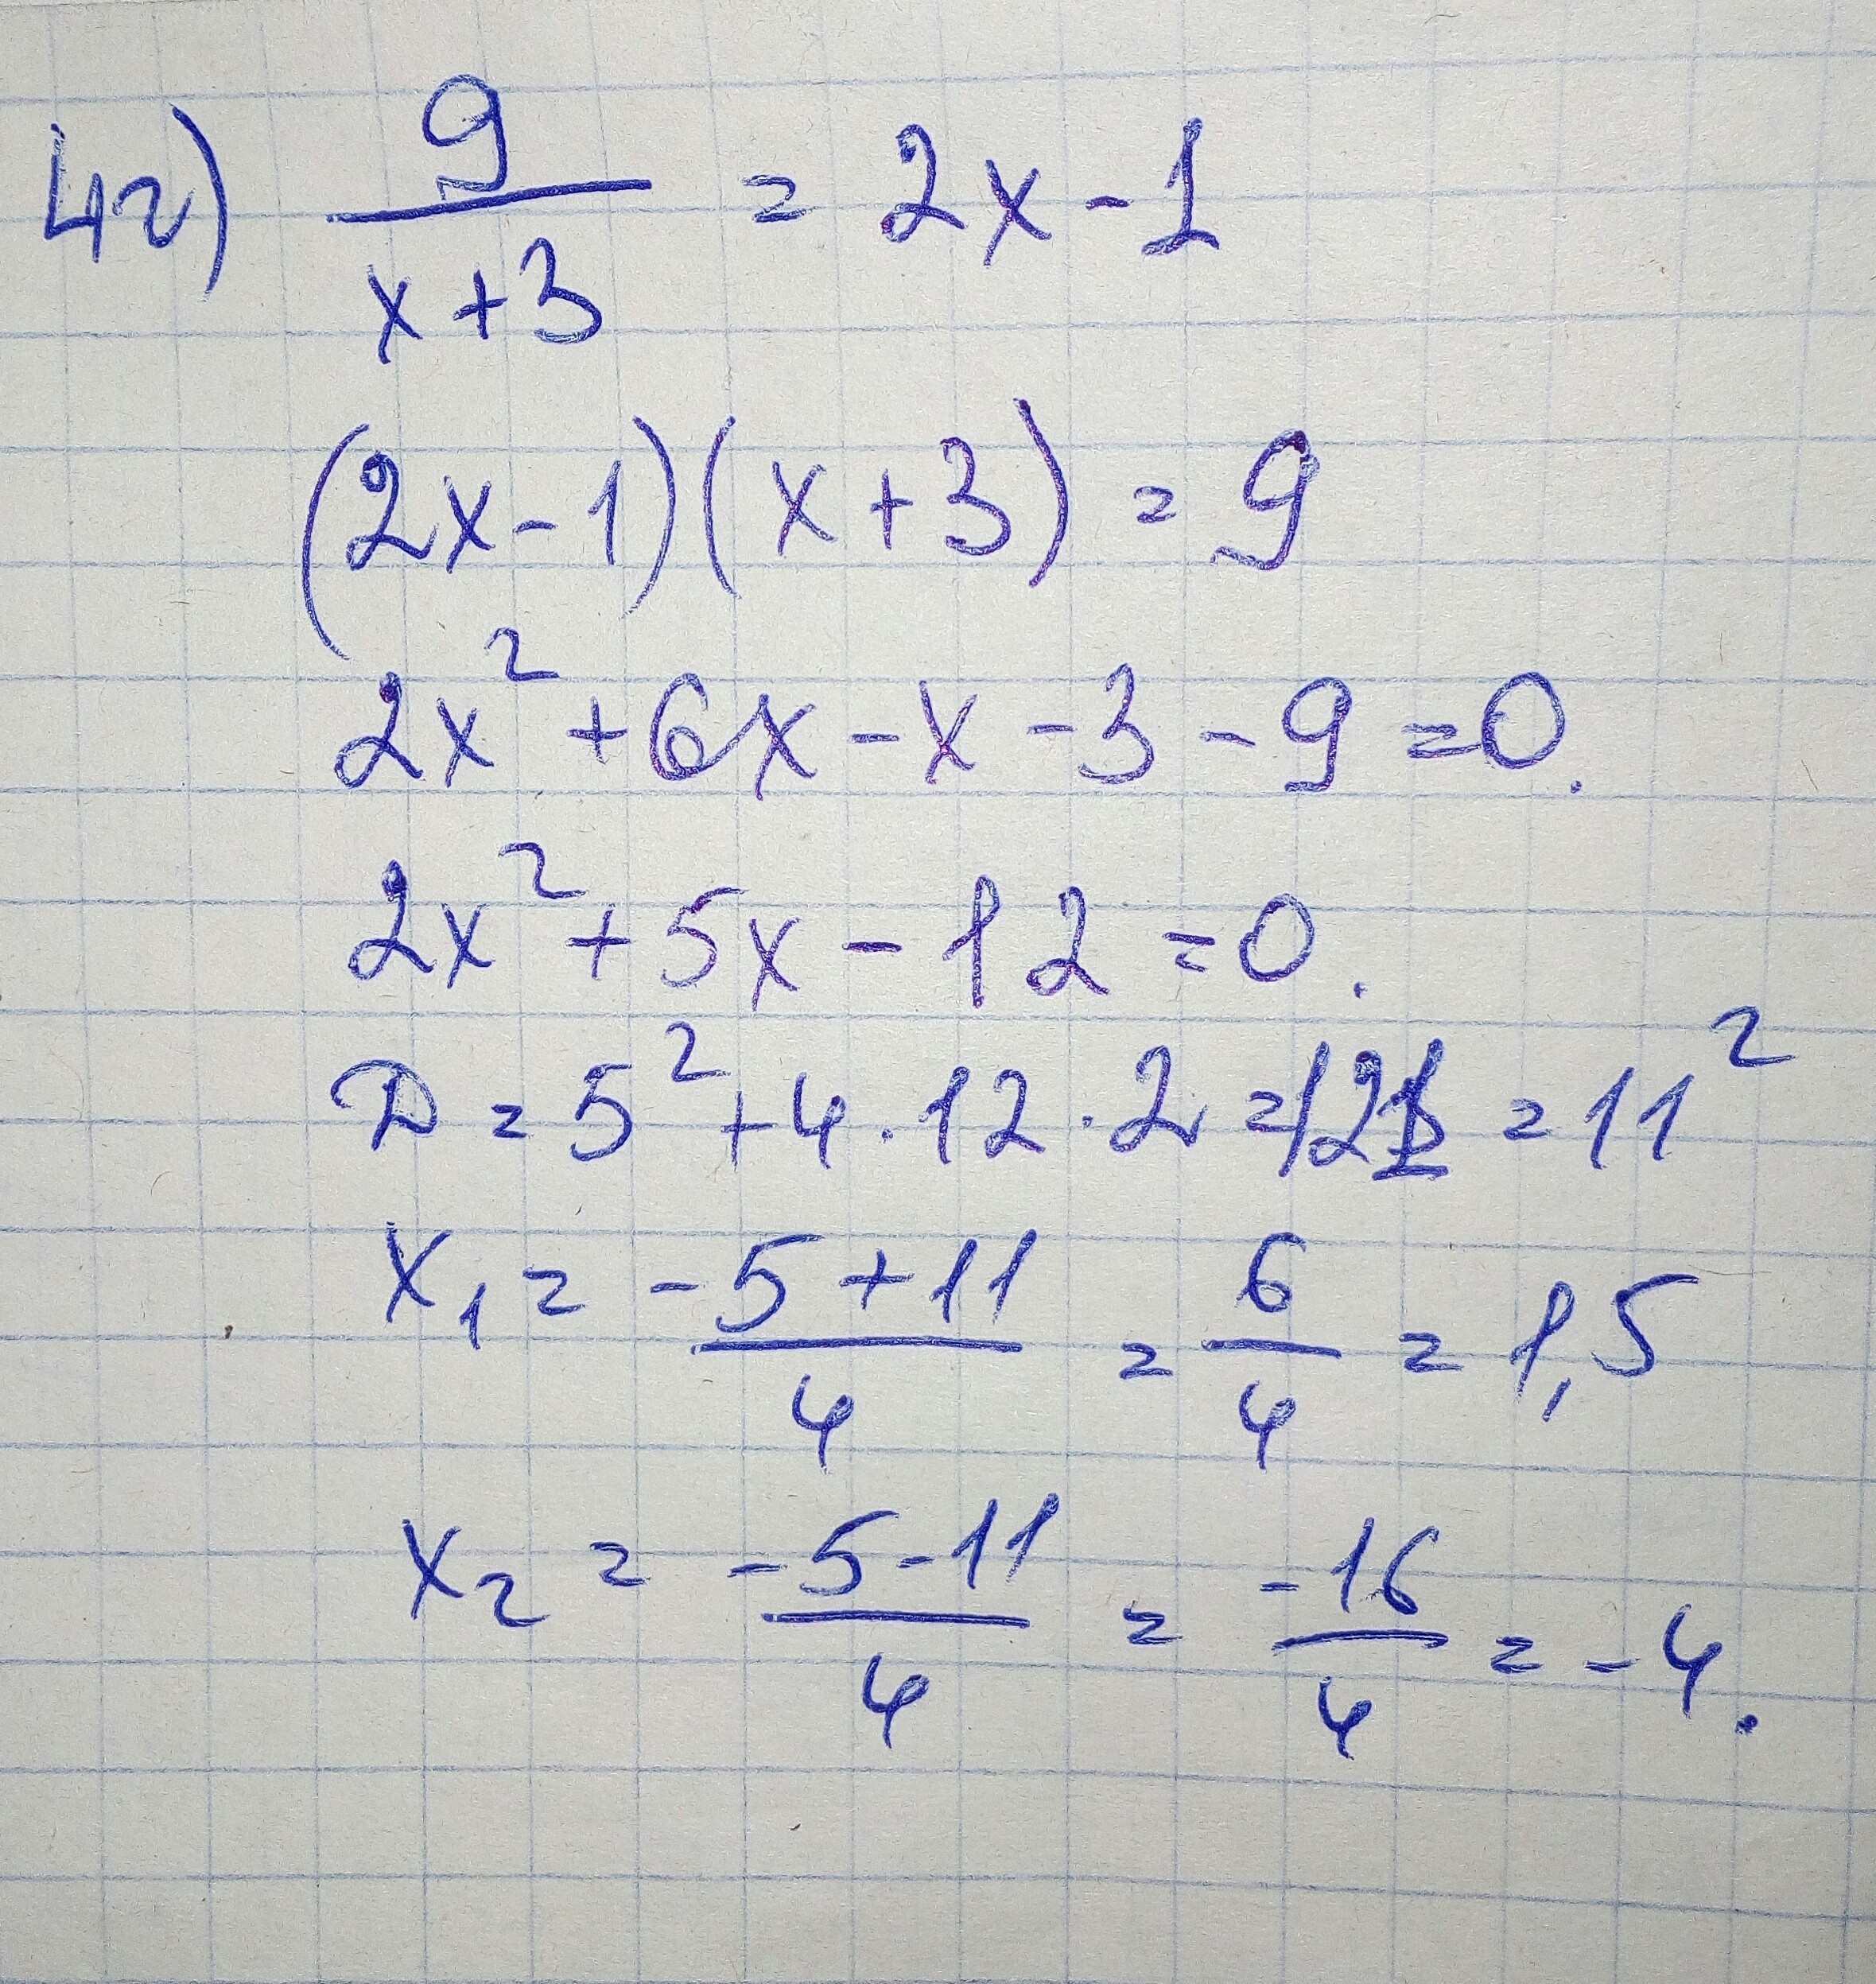 4г) 9/(x+3) = 2x - 1
(2x-1)(x+3) = 9
2x² + 6x - x - 3 - 9 = 0.
2x² + 5x - 12 = 0.
D = 5² + 4 · 12 · 2 = 121 = 11²
x₁ = (-5+11)/4 = 6/4 = 1,5
x₂ = (-5-11)/4 = -16/4 = -4.